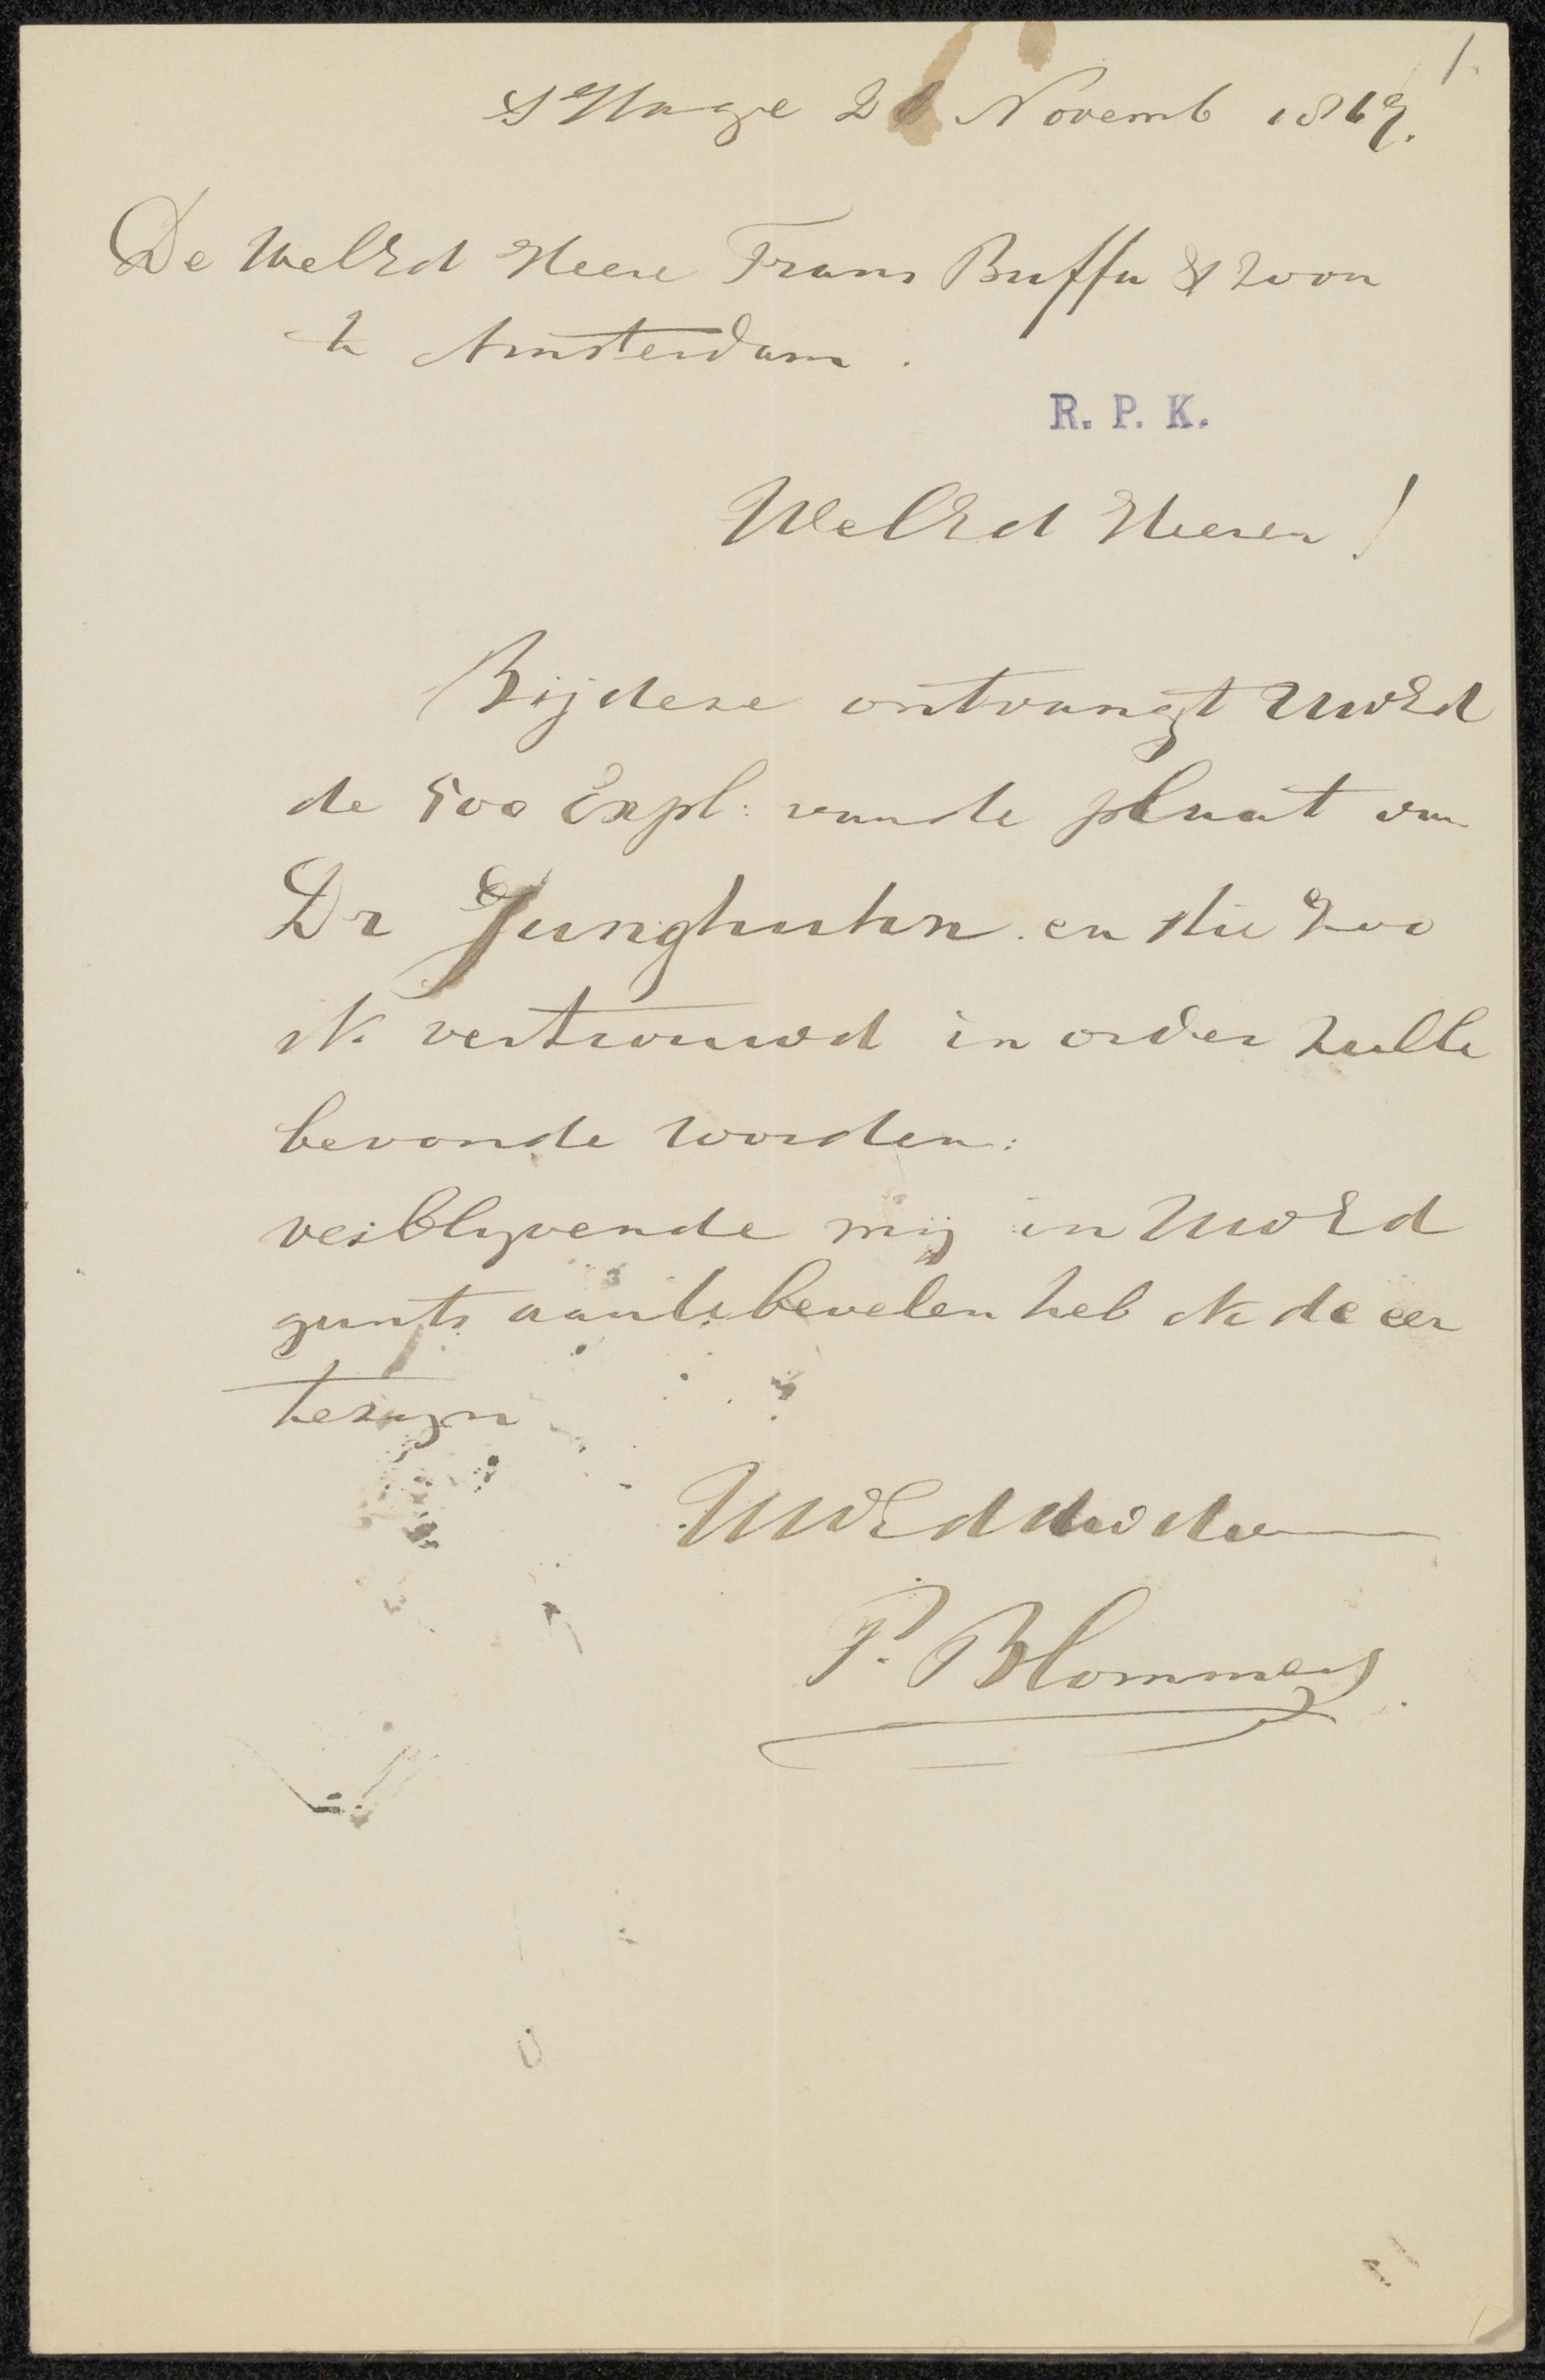 1.
S Hage 28 Novemb 1869.
De WelEd Heere Frans Buffa & zoon
te Amsterdam.
R. P. K.
WelEd Heeren!
Bijdese ontvangt UwEd
de 500 Expl: vande plaat van
Dr Junghuhn en die zoo
ik vertrouwd in order zulle
bevonde worden:
verblyvende mij in UwEd
gunts aantebevelen heb ik de eer
tezyn
UwEd dwdn
P. Blommers